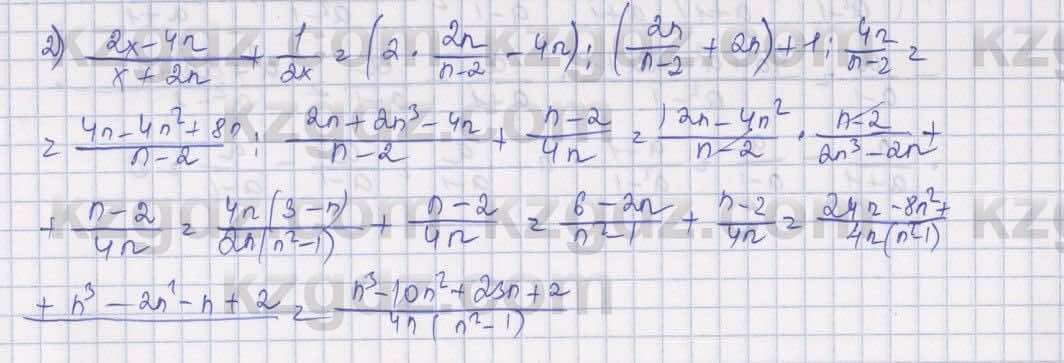 2) (2x-4n)/(x+2n) + 1/(2x) = (2 · 2n/(n-2) - 4n) : (2n/(n-2) + 2n) + 1 : 4n/(n-2) =
= (4n-4n²+8n)/(n-2) : (2n+2n³-4n)/(n-2) + (n-2)/(4n) = (12n-4n²)/(n-2) · (n-2)/(2n³-2n) +
+ (n-2)/(4n) = 4n(3-n)/(2n(n²-1)) + (n-2)/(4n) = (6-2n)/(n²-1) + (n-2)/(4n) = (24n-8n²+)/(4n(n²-1))
+ n³-2n²-n+2 = (n³-10n²+23n+2)/(4n(n²-1))
kzgdz.com